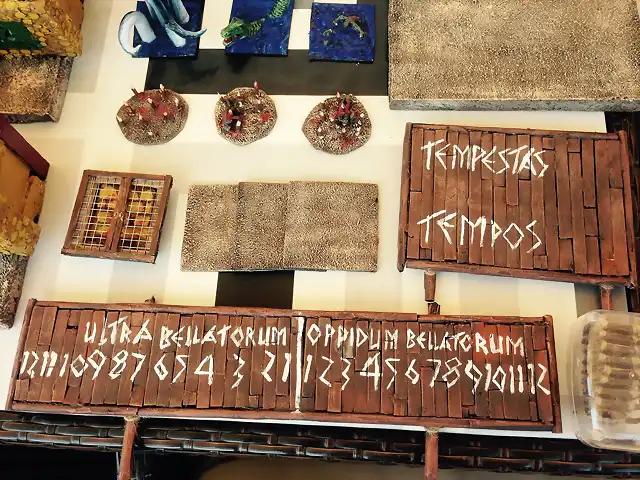 TEMPESTAS
TEMPOS
ULTRA BELLATORUM OPPIDUM BELLATORUM
12 11 10 9 8 7 6 5 4 3 2 1 1 2 3 4 5 6 7 8 9 10 11 12